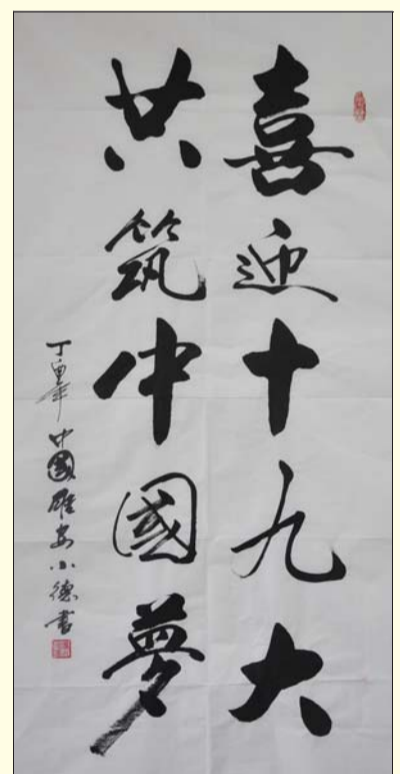 喜迎十九大
共筑中國夢
丁酉年中國雄安小德書